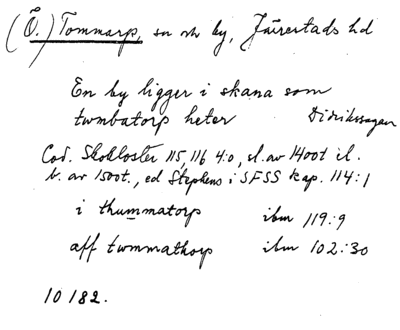 (Ö.) Tommarp, sn och by, Järrestads hd
En by ligger i skana som
twmbatorp heter Didrikssagan
Cod. Skokloster 115, 116 4:o, sl. av 1400t el.
b. av 1500t., ed Stephens i SFSS kap. 114:1
i thummatorp ibm 119:9
aff twmmathorp ibm 102:30
10182.